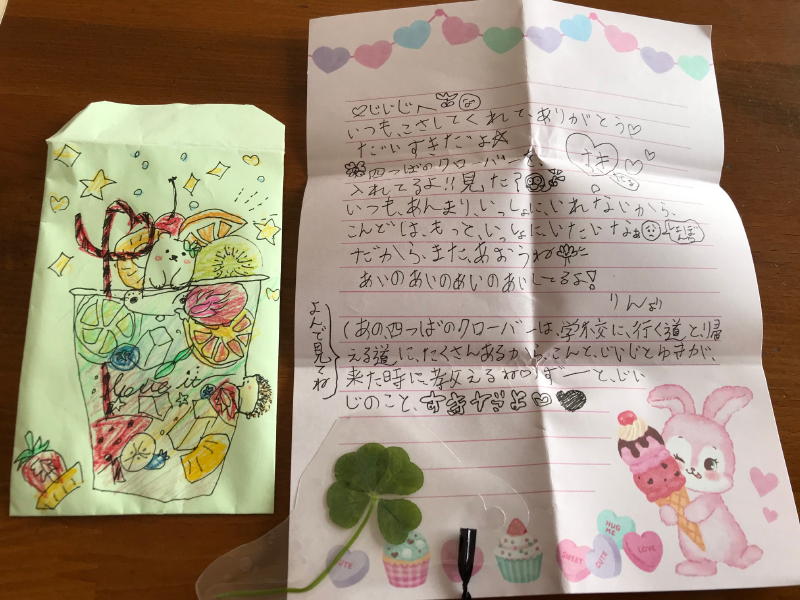 ♡じいじへ
いつも、こさしてくれて、ありがとう♡
だいすきだよ☆
四つばのクローバーを、
入れてるよ!!見た?
すき
いつも、あんまり、いっしょに、いれないから、
こんどは、もっと、いっしょに、いたいなぁ
だから、また、あおうね
あいのあいのあいのあいしてるよ!
りんより
よんで見てね
(あの、四つばのクローバーは、学校に、行く道と、帰
える道に、たくさんあるから、こんど、じいじとゆきが、
来た時に、教えるね♡ずーーっと、じい
じのこと、すきだよ♡
Love it
CUTE
SWEET
CUTE
HUG ME
LOVE